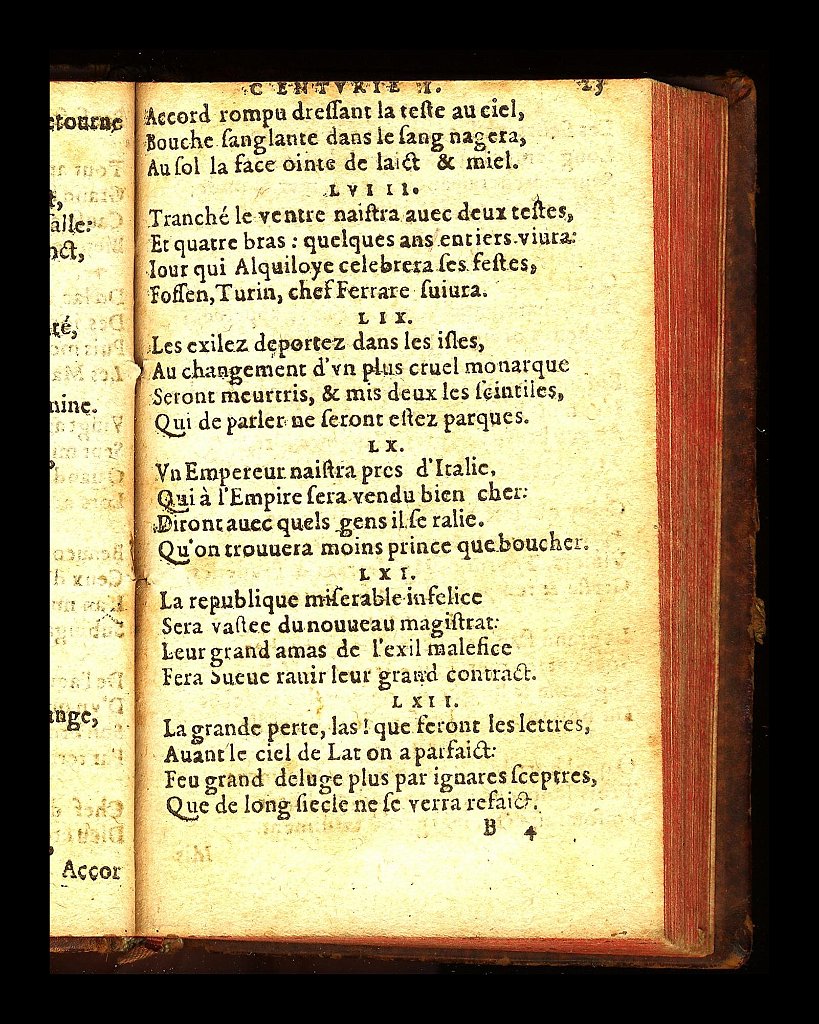 etourne
alle:
té,
mine.
ange,
Accor
CENTVRIE I. 23
Accord rompu dreſſant la teſte au ciel,
Bouche ſanglante dans le ſang nagera,
Au ſol la face ointe de laict & miel.
LVIII.
Tranché le ventre naiſtra auec deux teſtes,
Et quatre bras : quelques ans entiers viura:
Iour qui Alquiloye celebrera ſes feſtes,
Foſſen, Turin, chef Ferrare ſuiura.
LIX.
Les exilez deportez dans les iſles,
Au changement d'vn plus cruel monarque
Seront meurtris, & mis deux les ſcintiles,
Qui de parler ne ſeront eſtez parques.
LX.
Vn Empereur naiſtra pres d'Italie,
Qui à l'Empire ſera vendu bien cher:
Diront auec quels gens il ſe ralie.
Qu'on trouuera moins prince que boucher.
LXI.
La republique miſerable infelice
Sera vaſtee du nouueau magiſtrat:
Leur grand amas de l'exil malefice
Fera Sueue rauir leur grand contract.
LXII.
La grande perte, las ! que feront les lettres,
Auant le ciel de Lat on a parfaict:
Feu grand deluge plus par ignares ſceptres,
Que de long ſiecle ne ſe verra refaict.
B 4